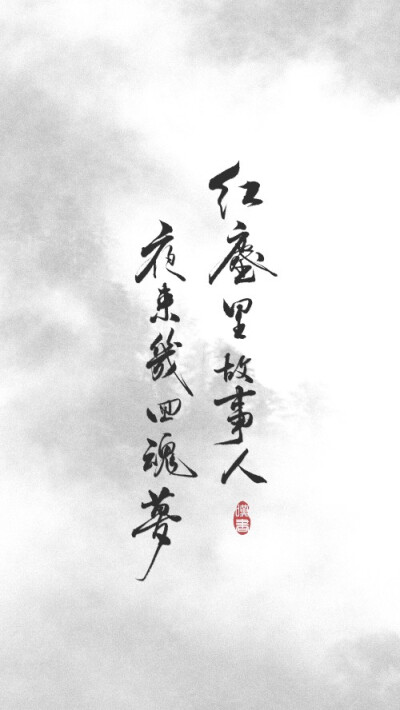 红尘里故事人
夜来几回魂梦